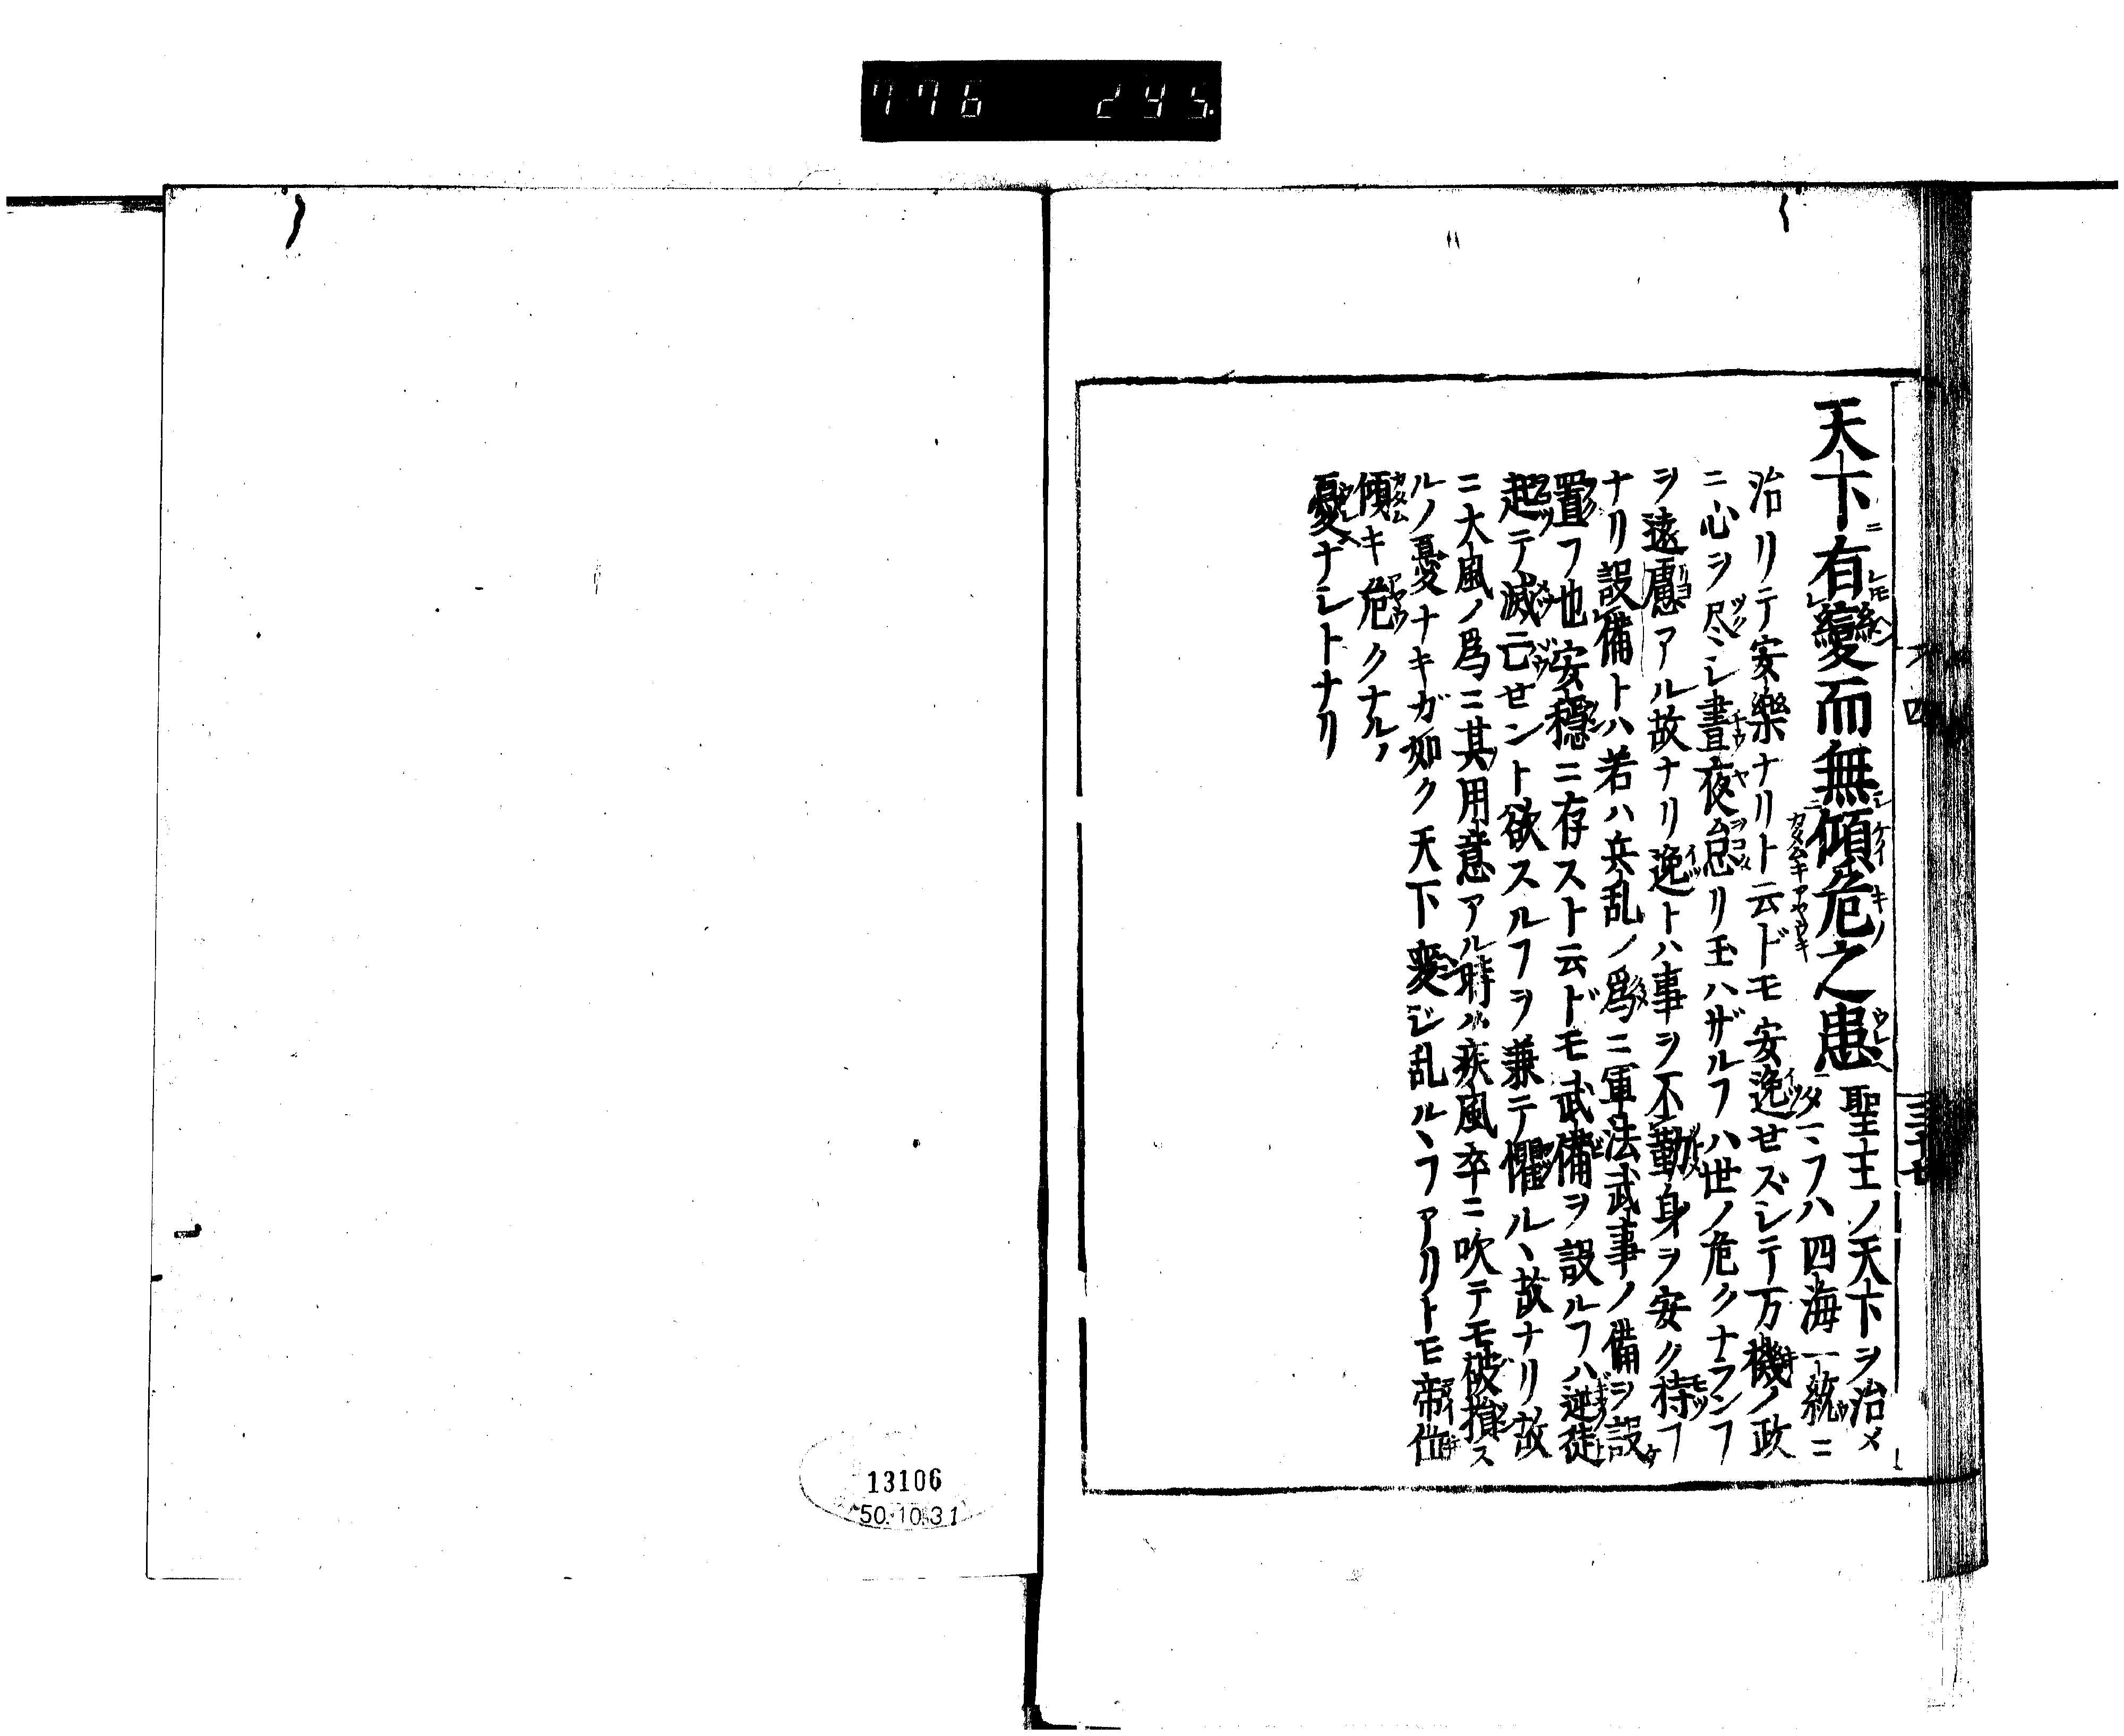 776 245.
天下有變而無傾危之患 聖主ノ天下ヲ治メ
タマフヿハ四海一統ニ
治リテ安樂ナリト云ドモ安逸セズシテ万機ノ政
ニ心ヲ尽シ晝夜怠リ玉ハザルヿハ世ノ危クナランヿ
ヲ遠慮アル故ナリ逸トハ事ヲ不勤身ヲ安ク持ヿ
ナリ設備トハ若ハ兵乱ノ爲ニ軍法武事ノ備ヲ設ケ
置ヿ也安穩ニ存スト云ドモ武備ヲ設ルヿハ逆徒
起テ滅亡セント欲スルヿヲ兼テ懼ルヽ故ナリ故
ニ大風ノ爲ニ其用意アル時ハ疾風卒ニ吹テモ破損ス
ルノ憂ナキガ如ク天下変ジ乱ルヽヿアリトモ帝位
傾キ危クナルノ
憂ナシトナリ
13106
50.10.31